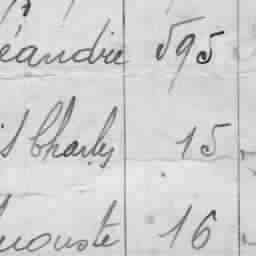 éandre 595
Charly 15
uguste 16